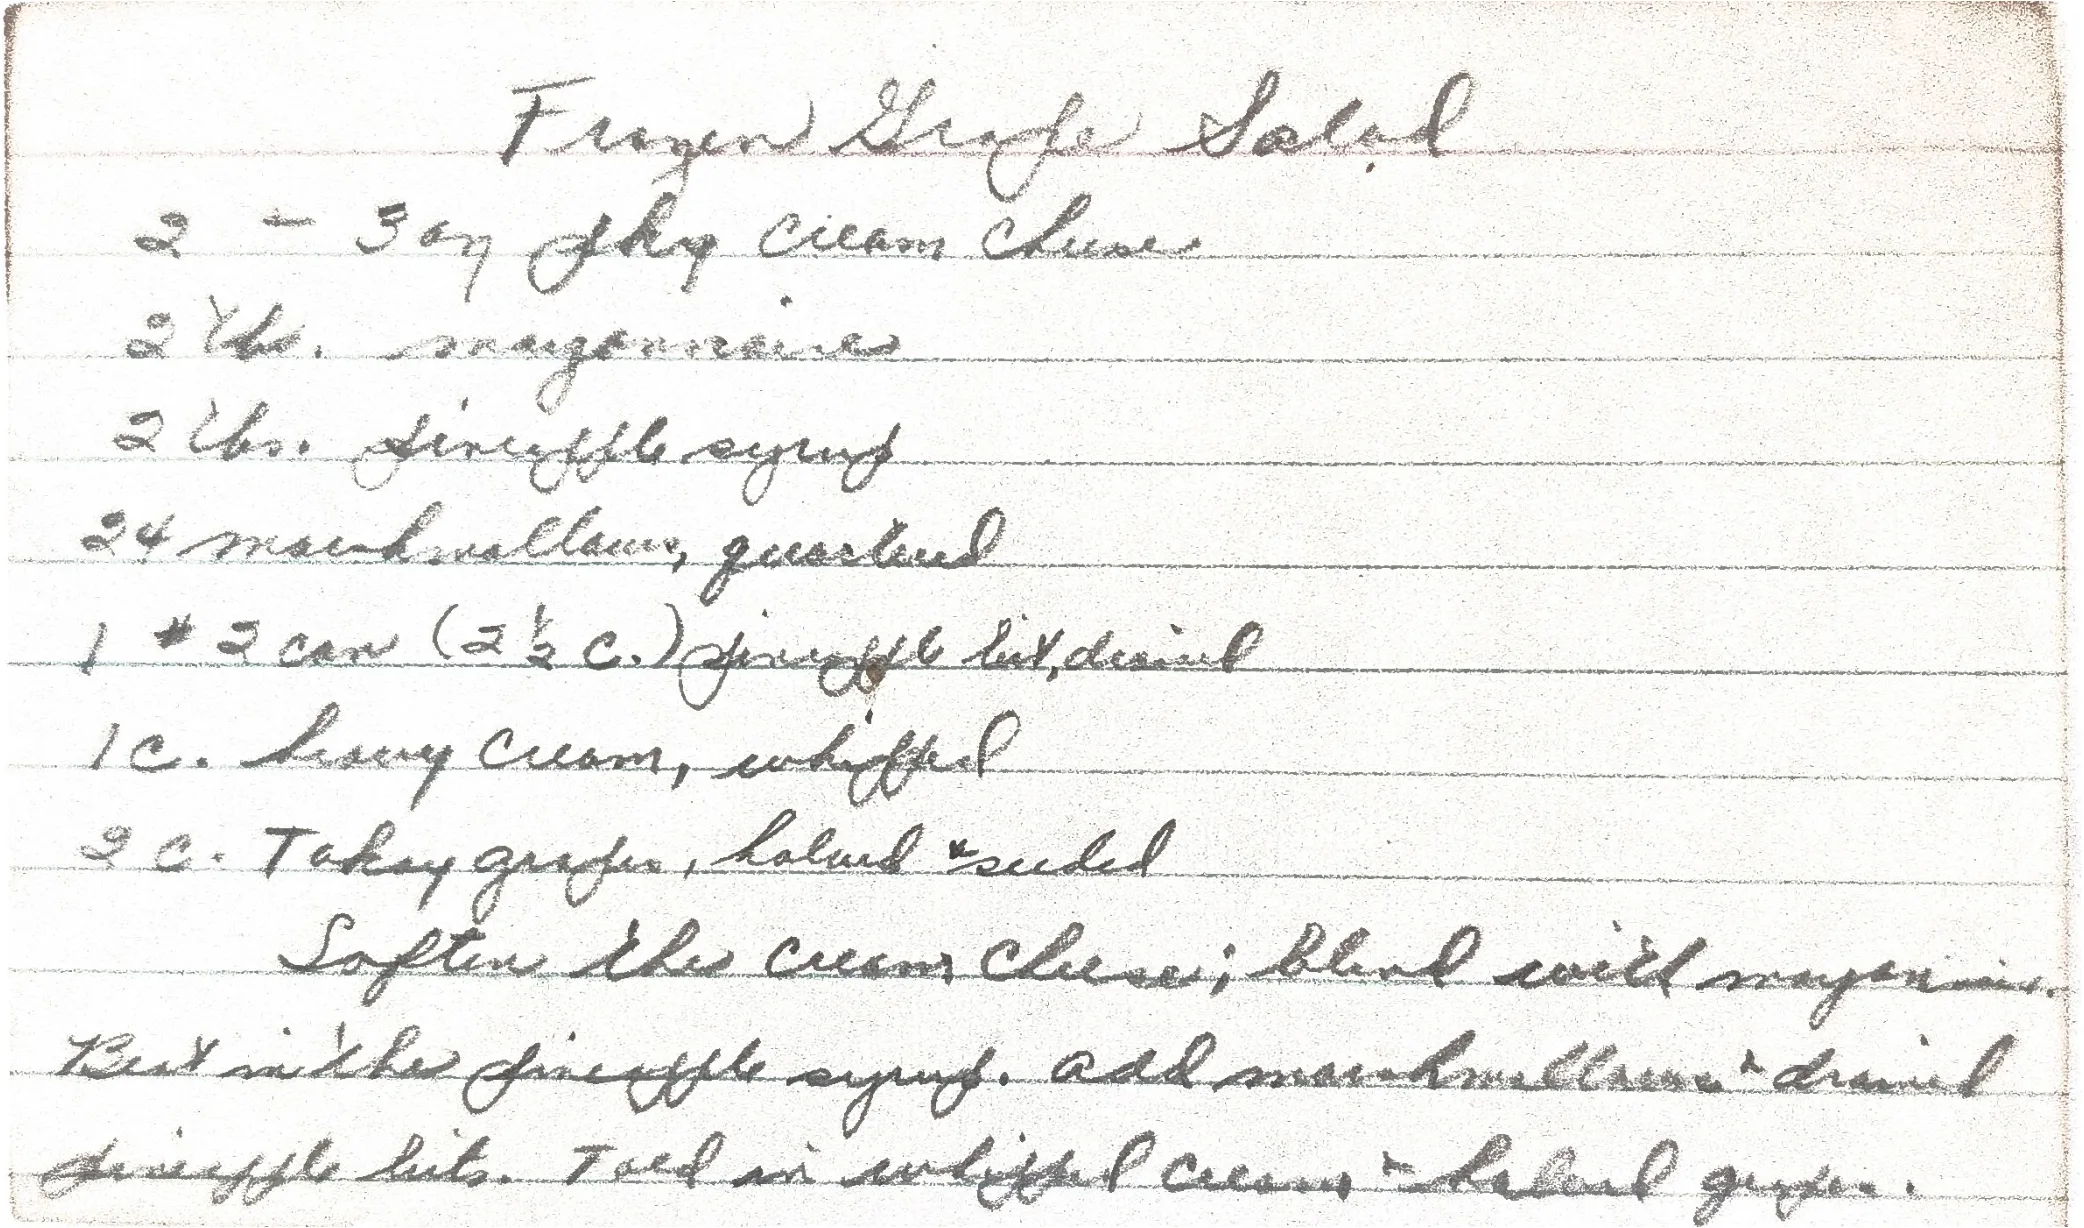 Frozen Grape Salad
2 - 3 oz pkg cream cheese
2 tbs. mayonnaise
2 tbs. pineapple syrup
24 marshmallows, quartered
1 #2 can (2 1/2 c.) pineapple bits, drained
1 c. heavy cream, whipped
2 c. Tokay grapes, halved & seeded
Soften the cream cheese; blend with mayonnaise.
Beat in the pineapple syrup. Add marshmallows & drained
pineapple bits. Fold in whipped cream & halved grapes.